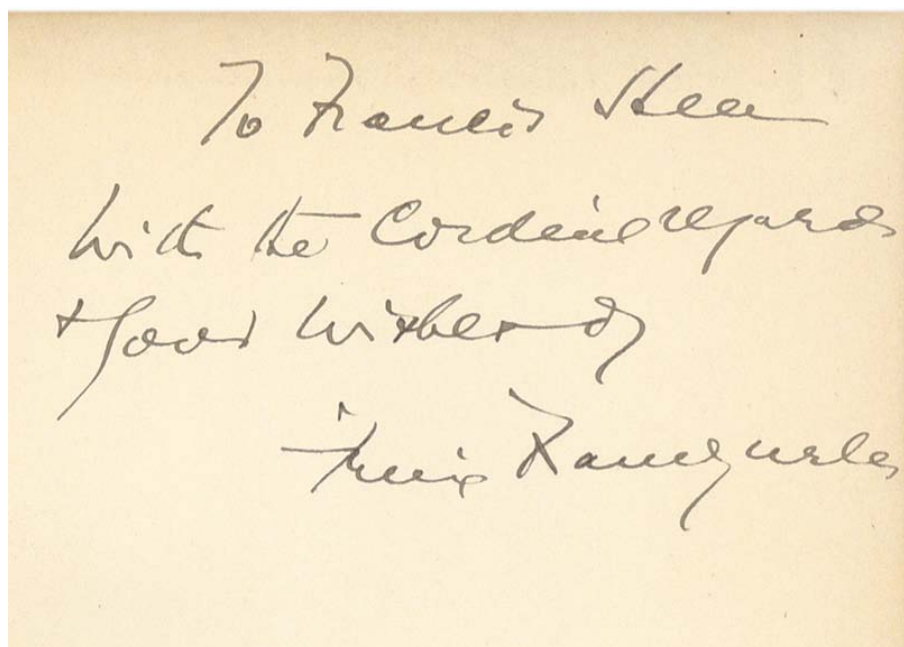 To Francis Shea
with the cordial regards
+ good wishes of
Felix Frankfurter